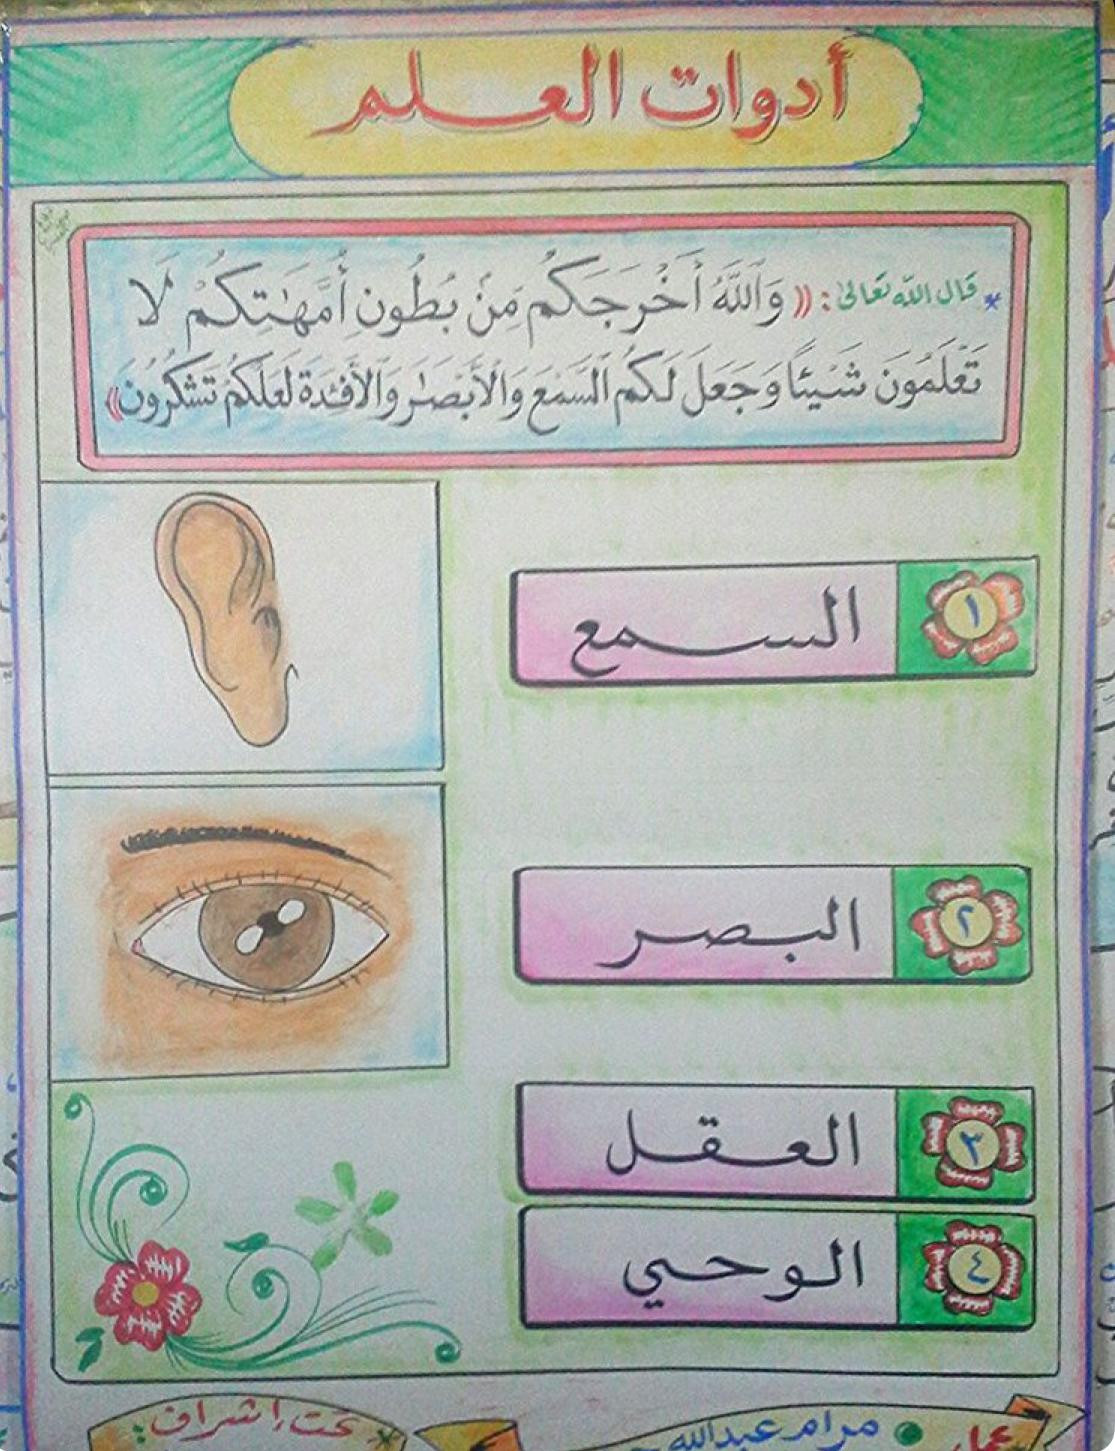 أدوات العلم
* قال الله تعالى: ((وَاللَّهُ أَخْرَجَكُم مِّنْ بُطُونِ أُمَّهَٰتِكُمْ لَا
تَعْلَمُونَ شَيْئًا وَجَعَلَ لَكُمُ السَّمْعَ وَالْأَبْصَٰرَ وَالْأَفْئِدَةَ لَعَلَّكُمْ تَشْكُرُونَ))
١ السمع
٢ البصر
٣ العقل
٤ الوحي
عمل مرام عبدالله
* تحت إشراف: